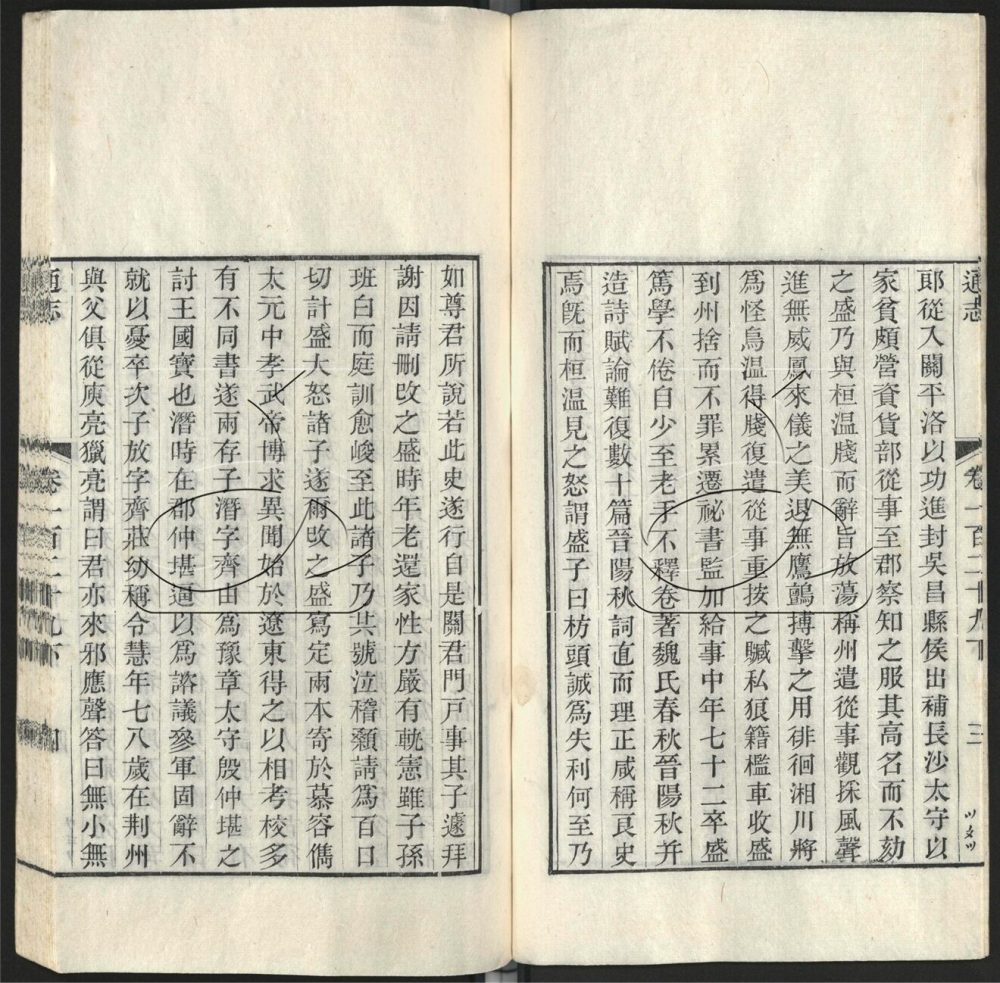 通志
卷一百二十九下
三
郎從入關平洛以功進封吳昌縣侯出補長沙太守以
家貧頗營資貨部從事至郡察知之服其高名而不劾
之盛乃與桓溫牋而辭旨放蕩稱州遣從事觀採風聲
進無威鳳來儀之美退無鷹鸇搏擊之用徘徊湘川將
爲怪鳥溫得牋復遣從事重按之贓私狼籍檻車收盛
到州捨而不罪累遷祕書監加給事中年七十二卒盛
篤學不倦自少至老手不釋卷著魏氏春秋晉陽秋幷
造詩賦論難復數十篇晉陽秋詞直而理正咸稱良史
焉旣而桓溫見之怒謂盛子曰枋頭誠爲失利何至乃
如尊君所說若此史遂行自是關君門戸事其子遽拜
謝因請刪改之盛時年老還家性方嚴有軌憲雖子孫
班白而庭訓愈峻至此諸子乃共號泣稽顙請爲百口
切計盛大怒諸子遂爾改之盛寫定兩本寄於慕容儁
太元中孝武帝博求異聞始於遼東得之以相考校多
有不同書遂兩存子潛字齊由爲豫章太守殷仲堪之
討王國寶也潛時在郡仲堪逼以爲諮議參軍固辭不
就以憂卒次子放字齊莊幼稱令慧年七八歲在荆州
與父俱從庾亮獵亮謂曰君亦來邪應聲答曰無小無
通志
卷一百二十九下